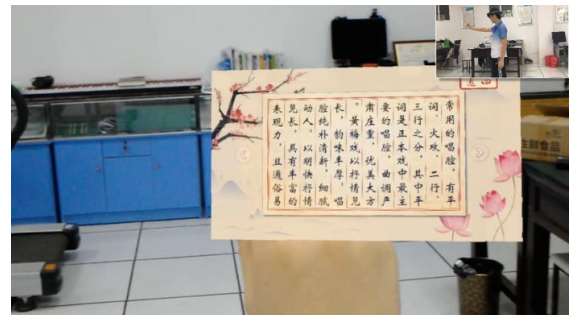 常用的唱腔，有平
词、火攻、二行、
三行之分，其中平
词是正本戏中最主
要的唱腔，曲调严
肃庄重，优美大方
。黄梅戏以抒情见
长，韵味丰厚，唱
腔纯朴清新，细腻
动人，以明快抒情
见长，具有丰富的
表现力，且通俗易
生鲜食品